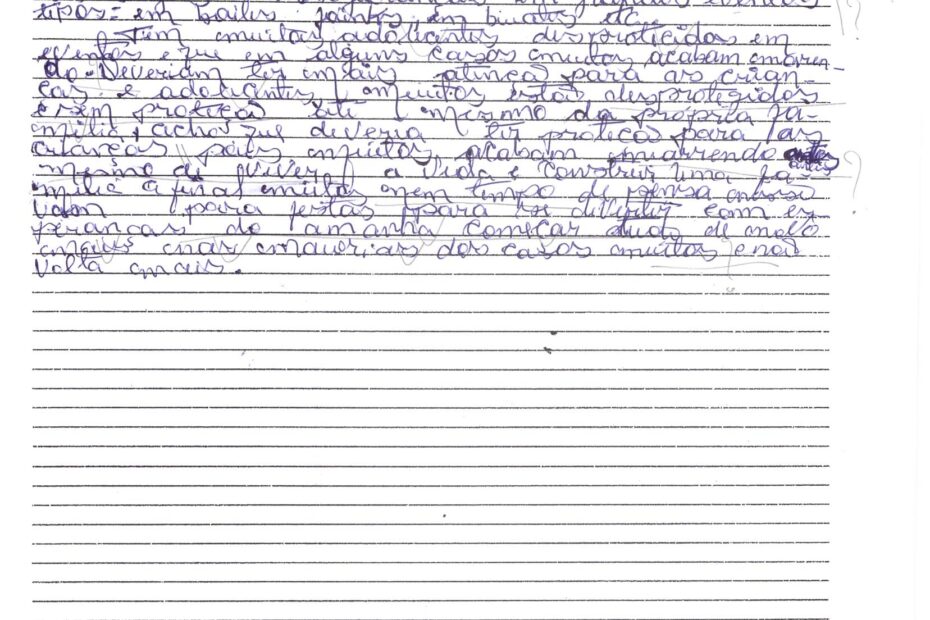 tipos = em bailes, jantas, em bincates etc.
Tem muitos adolicentes desproticidos em
eventos e que em alguns casos muitos acabam morren-
do. Deveriam ter mais atinca para as crian-
cas e adolicentes, muitos estas desprotigidos
e sem protica até mesmo da propria fa-
milia, acho que diveria ter proticas para las
criancas pais muitos acabam muarrendo antes
mesmo de viver a vida e construir uma fa-
milia a final muitos nem tempo de pensa
vaam para festas para se divertir com es-
perancas do amanha começar tudo de novo
mais nas maiorias dos casos muitos e não
volta mais.